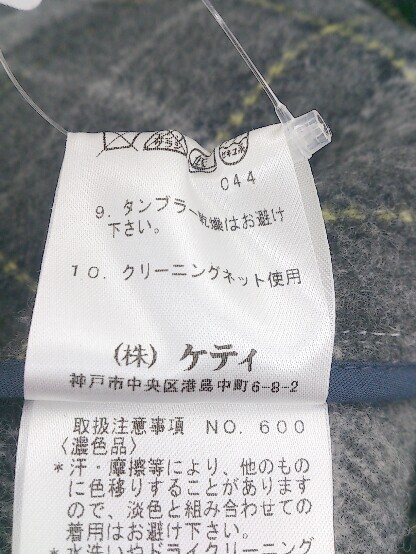 044
9. タンブラー乾燥はお避け
下さい。
10. クリーニングネット使用
(株) ケティ
神戸市中央区港島中町6-8-2
取扱注意事項 NO. 600
〈濃色品〉
*汗・摩擦等により、他のもの
に色移りすることがあります
ので、淡色と組み合わせての
着用はお避け下さい。
*水洗いやドライクリーニング